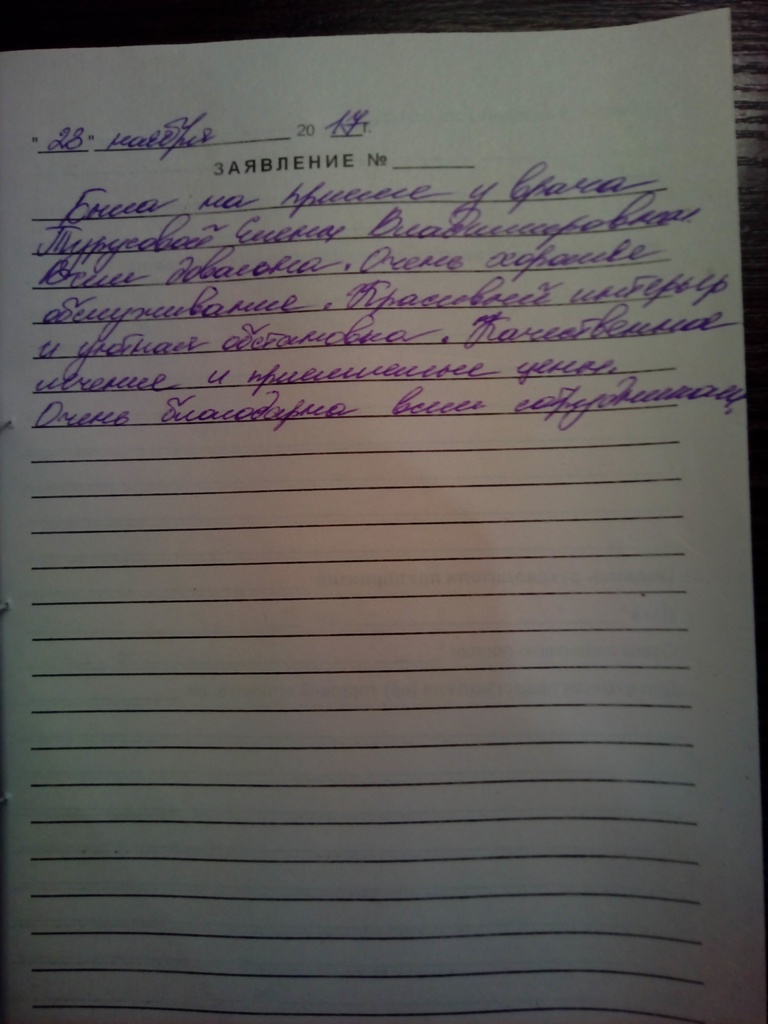 "28" ноября 2017г.
ЗАЯВЛЕНИЕ №
Была на приеме у врача
Турусовой Елены Владимировны.
Всем довольна. Очень хорошее
обслуживание. Красивый интерьер
и уютная обстановка. Качественное
лечение и приемлемые цены.
Очень благодарна всем сотрудникам